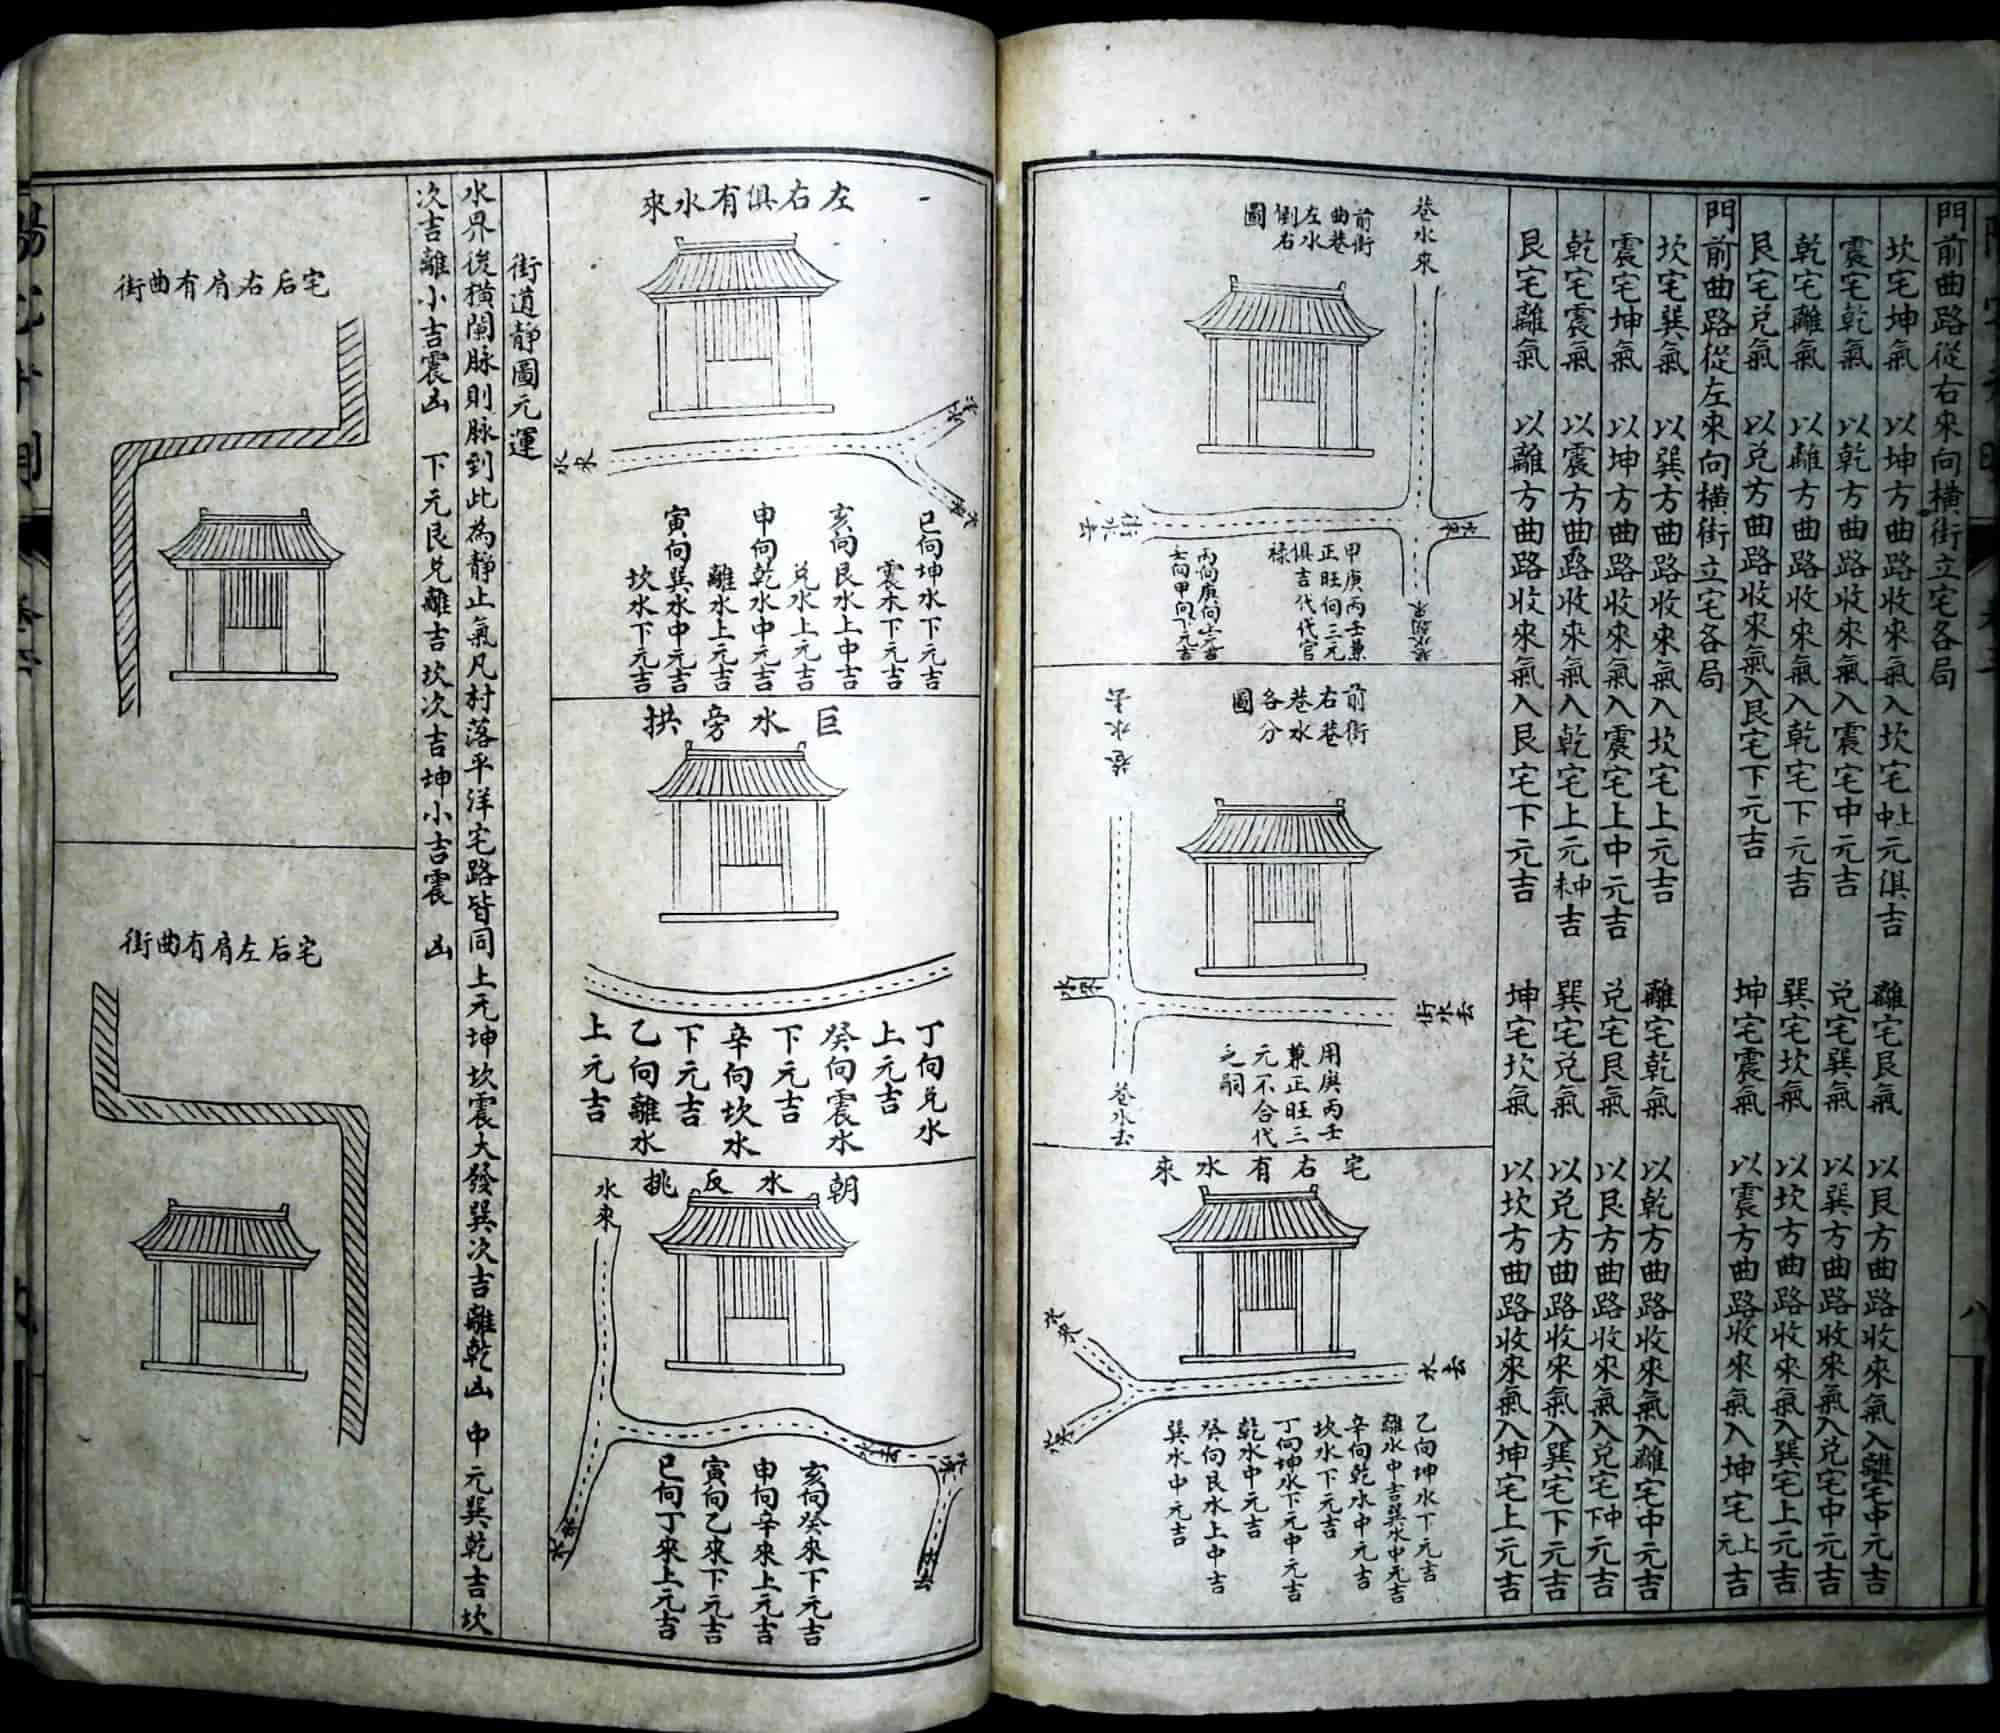 門前曲路從右來向橫街立宅各局
坎宅坤氣 以坤方曲路收來氣入坎宅上中元俱吉 離宅艮氣 以艮方曲路收來氣入離宅中元吉
震宅乾氣 以乾方曲路收來氣入震宅中元吉 兌宅巽氣 以巽方曲路收來氣入兌宅中元吉
乾宅離氣 以離方曲路收來氣入乾宅下元吉 巽宅坎氣 以坎方曲路收來氣入巽宅上元吉
艮宅兌氣 以兌方曲路收來氣入艮宅下元吉 坤宅震氣 以震方曲路收來氣入坤宅上元吉
門前曲路從左來向橫街立宅各局
坎宅巽氣 以巽方曲路收來氣入坎宅上元吉 離宅乾氣 以乾方曲路收來氣入離宅中元吉
震宅坤氣 以坤方曲路收來氣入震宅上中元吉 兌宅艮氣 以艮方曲路收來氣入兌宅中下元吉
乾宅震氣 以震方曲路收來氣入乾宅上元吉 巽宅兌氣 以兌方曲路收來氣入巽宅下元吉
艮宅離氣 以離方曲路收來氣入艮宅下元吉 坤宅坎氣 以坎方曲路收來氣入坤宅上元吉
巷水來
前街
曲巷
左水
倒右
圖
水來
街水去
甲庚丙壬兼
正旺向三元
俱吉代代官
祿
丙向庚向上元吉
壬向甲向下元吉
前街
右巷
巷水
各分
圖
巷水去
水來
街水去
巷水去
用庚丙壬
兼正旺三
元不合代
乏嗣
宅右有水來
水來
水去
水來
乙向坤水下元吉
離水中吉巽水中元吉
辛向乾水中元吉
坎水下元吉
丁向坤水下元中元吉
乾水中元吉
癸向艮水上中吉
巽水中元吉
八
左右俱有水來
水來
水來
水來
巳向坤水下元吉
震水下元吉
亥向艮水上中吉
兌水上元吉
申向乾水中元吉
離水上元吉
寅向巽水中元吉
坎水下元吉
巨水旁拱
丁向兌水
上元吉
癸向震水
下元吉
辛向坎水
下元吉
乙向離水
上元吉
朝水反挑
水來
水去
水來
水去
水去
亥向癸來下元吉
申向辛來上元吉
寅向乙來下元吉
巳向丁來上元吉
街道靜圖元運
水界後橫闌脉則脉到此為靜止氣凡村落平洋宅路皆同上元坤坎震大發巽次吉離乾凶 中元巽乾吉坎
次吉離小吉震凶 下元艮兌離吉坎次吉坤小吉震 凶
宅后右肩有曲街
宅后左肩有曲街